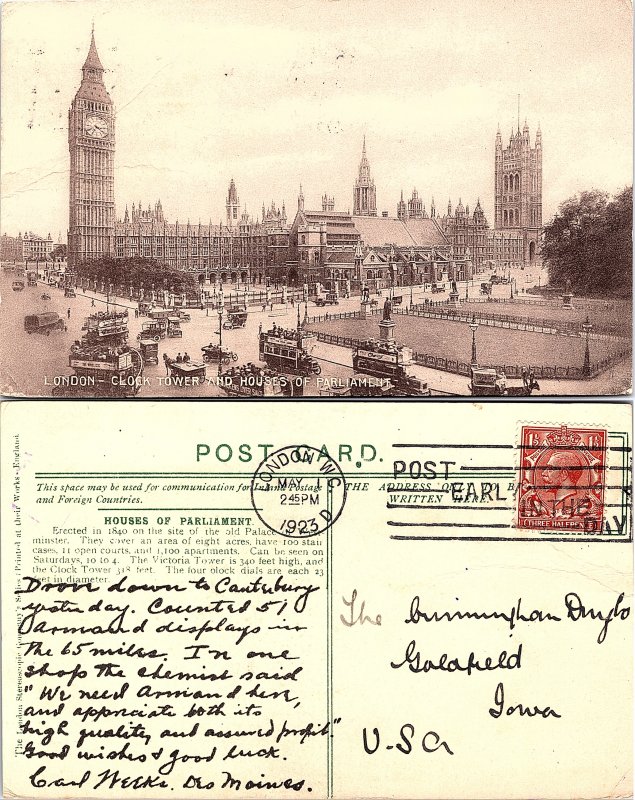 LONDON - CLOCK TOWER AND HOUSES OF PARLIAMENT
POST CARD.
This space may be used for communication for Inland Postage
and Foreign Countries.
THE ADDRESS ONLY TO BE
WRITTEN HERE.
HOUSES OF PARLIAMENT
Erected in 1840 on the site of the old Palace
minster. They cover an area of eight acres, have 100 stair
cases, 11 open courts, and 1,100 apartments. Can be seen on
Saturdays, 10 to 4. The Victoria Tower is 340 feet high, and
the Clock Tower 318 feet. The four clock dials are each 23
feet in diameter.
Drove down to Canterbury
yesterday. Counted 51
Armand displays in
the 65 miles. In one
shop the chemist said
"We need Armand here,
and appreciate both its
high quality and assured profit."
Good wishes & good luck.
Carl Weeks. Des Moines.
The London Stereoscopic Company's Series Printed at their Works - England
LONDON. W.C.
MAY
2.45PM
1923
D
POST
EARLY
IN THE
DAY
1½ 1½
THREE HALFPENCE
The Cunningham Drug Co
Goldfield
Iowa
USA